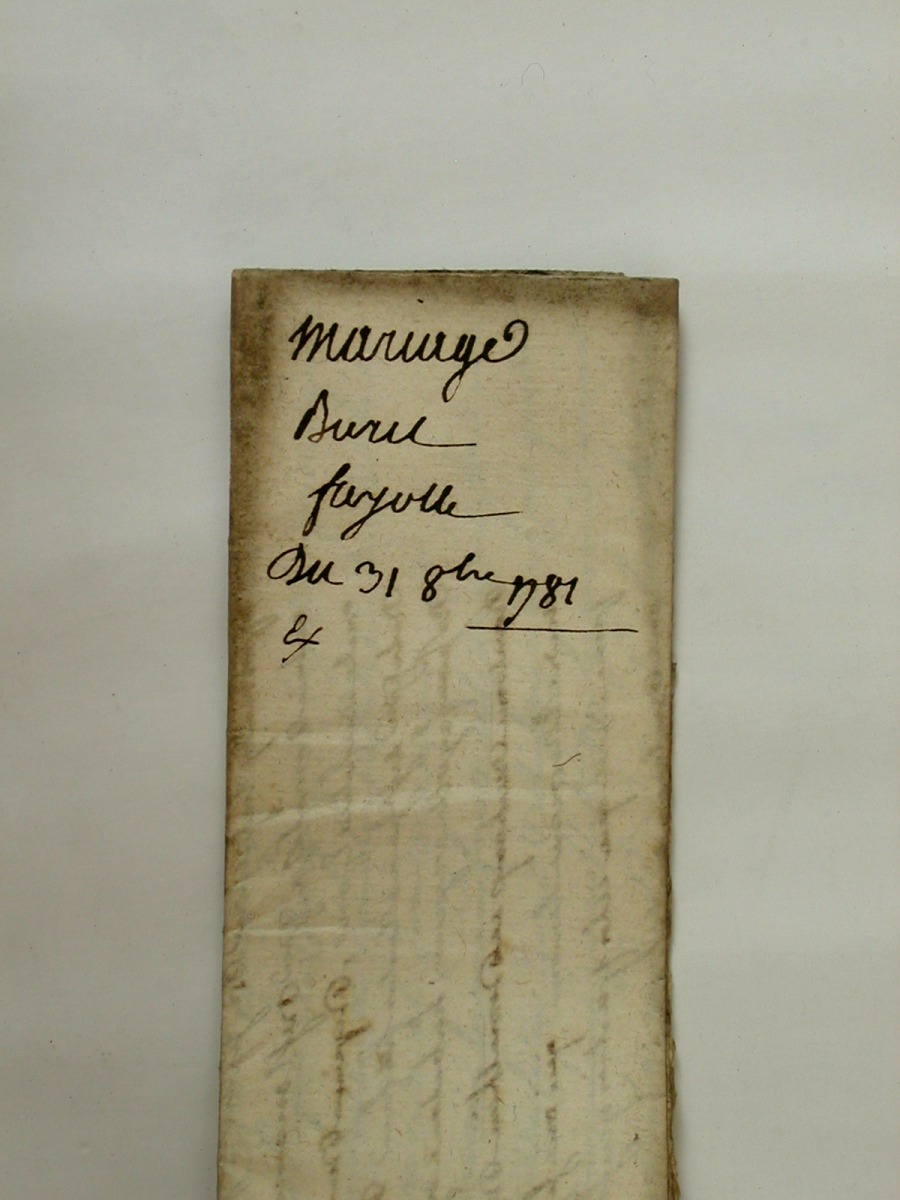 Mariage
Burel
fayolle
Du 31 8bre 1781